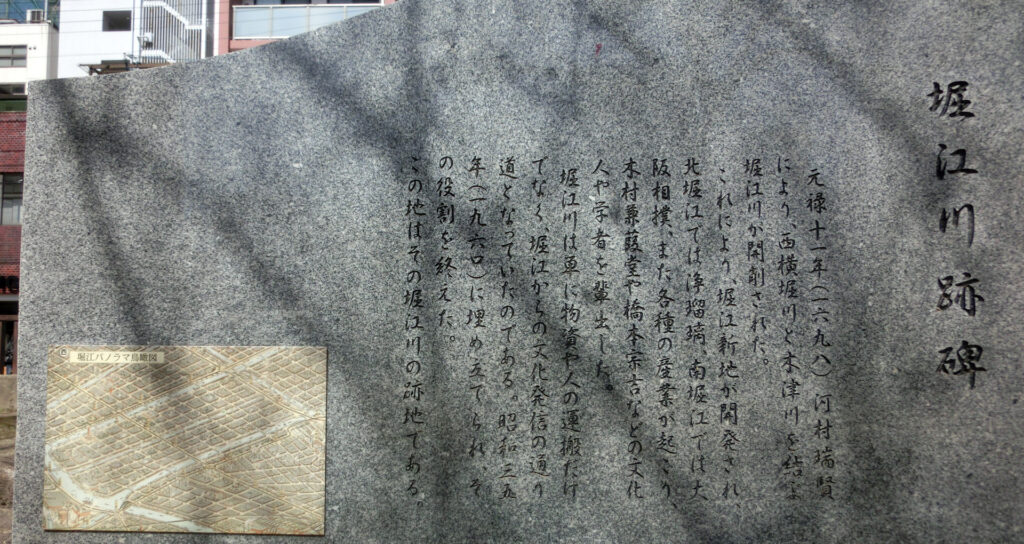 堀江川跡碑
元禄十一年(一六九八)河村瑞賢
により、西横堀川と木津川を結ぶ
堀江川が開削された。
これにより、堀江新地が開発され、
北堀江では浄瑠璃、南堀江では大
阪相撲、また各種の産業が起こり、
木村蒹葭堂や橋本宗吉などの文化
人や学者を輩出した。
堀江川は単に物資や人の運搬だけ
でなく、堀江からの文化発信の通り
道となっていたのである。昭和三五
年(一九六〇)に埋め立てられ、そ
の役割を終えた。
この地はその堀江川の跡地である。
堀江パノラマ鳥瞰図